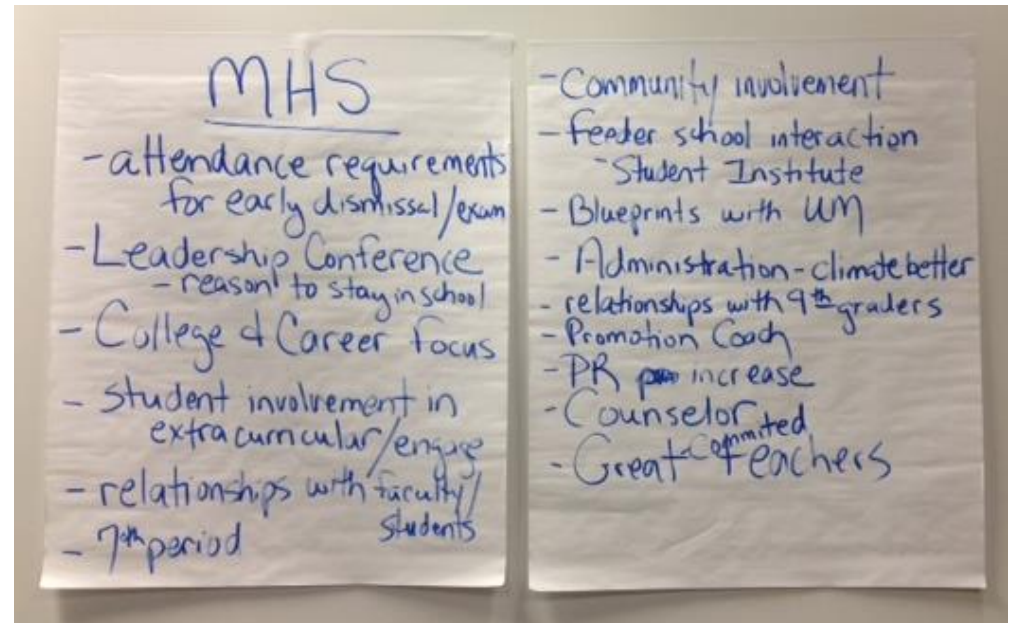 MHS
- attendance requirements
for early dismissal/exam
- Leadership Conference
- reason to stay in school
- College & Career Focus
- Student involvement in
extracurricular/engage
- relationships with faculty/
students
- 7th period
- Community involvement
- feeder school interaction
- Student Institute
- Blueprints with UM
- Administration - climate better
- relationships with 9th graders
- Promotion Coach
- PR increase
- Counselor
- Great Commited Teachers